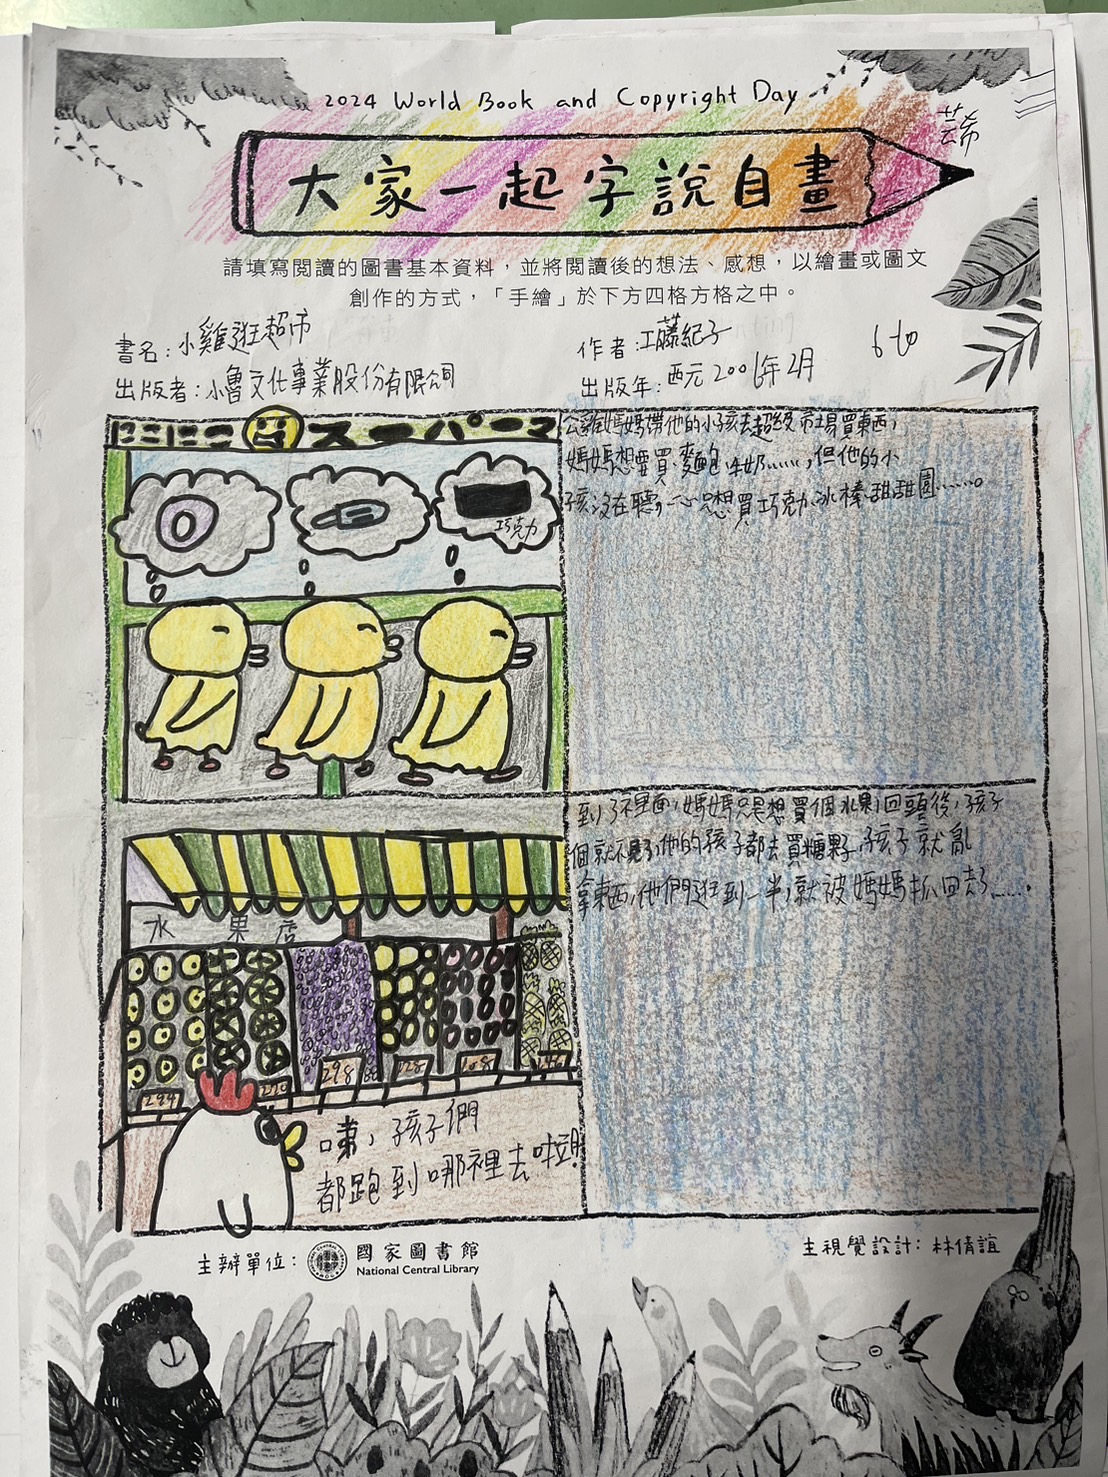 2024 World Book and Copyright Day
芸希
大家一起字說自畫
請填寫閱讀的圖書基本資料，並將閱讀後的想法、感想，以繪畫或圖文
創作的方式，「手繪」於下方四格方格之中。
書名：小雞逛超市
作者：工藤紀子
出版者：小魯文化事業股份有限公司
出版年：西元2006年2月
にこにこスーパーマ
巧克力
公雞媽媽帶他的小孩去超級市場買東西，
媽媽想要買麵包、牛奶……，但他的小
孩沒在聽，一心只想買巧克力、冰棒、甜甜圈……。
到了裡面，媽媽只是想買個水果，回頭後，孩子
個就不見了，他的孩子都去買糖果，孩子就亂
拿東西，他們逛到一半，就被媽媽抓回去了……。
水果店
294
290
298
228
168
咦，孩子們
都跑到哪裡去啦！
主辦單位：國家圖書館
National Central Library
主視覺設計：林倩誼